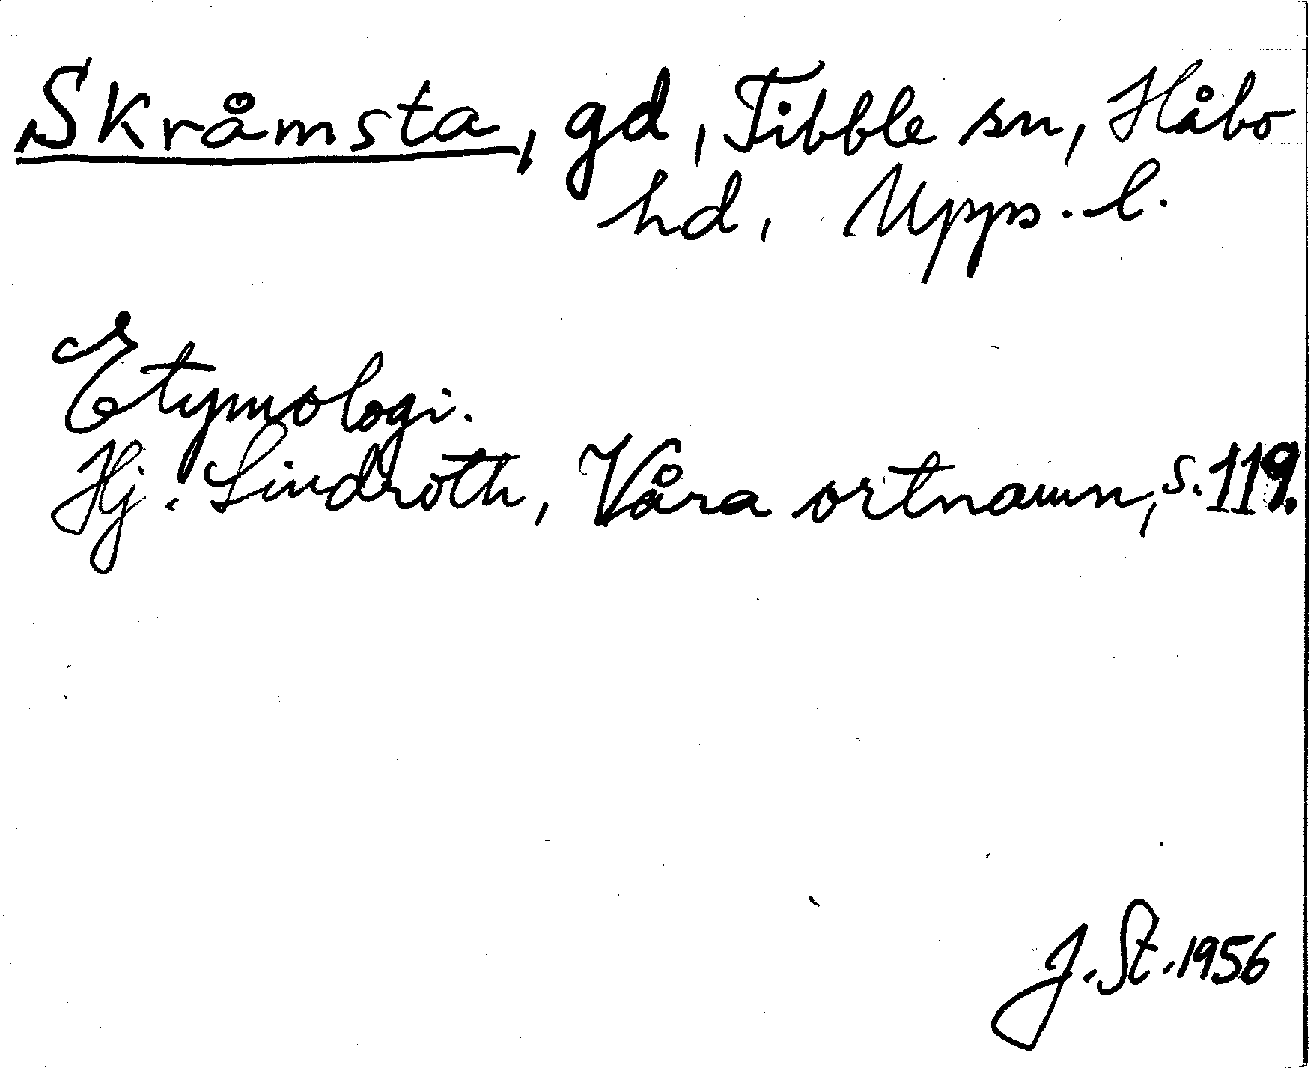 Skråmsta, gd, Tibble sn, Håbo
hd, Upps. l.
Etymologi.
Hj. Lindroth, Våra ortnamn, s. 119.
J. St. 1956